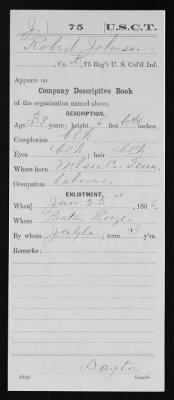 J. | 75 | U.S.C.T.
Robert Johnson
, Co. K, 75 Reg't U. S. Col'd Inf.
Appears on
Company Descriptive Book
of the organization named above.
DESCRIPTION.
Age 38 years; height feet 6¼ inches.
Complexion Blk
Eyes Blk ; hair Blk
Where born Wilson Co. Tenn.
Occupation Laborer
ENLISTMENT.
When Jan 25, 186
Where Baton Rouge
By whom ; term 3 y'rs.
Remarks:
Dayton
Copyist.